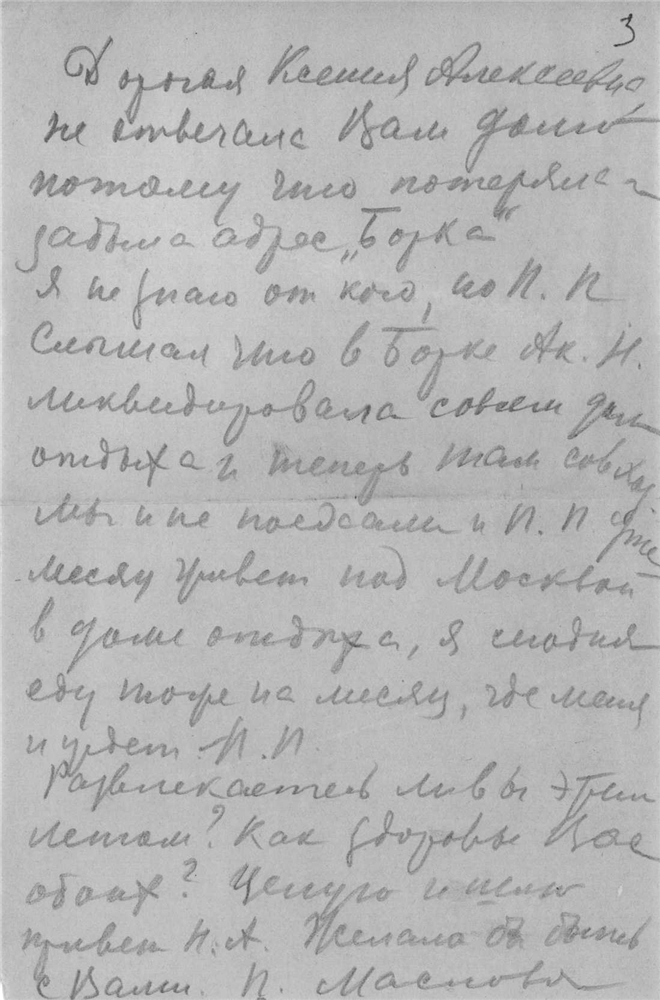 3
Дорогая Ксения Алексеевна
не отвечала Вам долго
потому что потеряла и
забыла адрес „Борка“
Я не знаю от кого, но П. П
слышал что в Борке Ак. Н.
ликвидировала совсем дом
отдыха и теперь там совхоз
мы и не поехали и П. П уже
месяц живет под Москвой
в доме отдыха, я сегодня
еду тоже на месяц, где меня
и ждет П. П.
Развлекаетесь ли вы этим
летом? Как здоровье Вас
обоих? Целую и шлю
привет Н. А. Желала бы быть
с Вами. П. Маслова